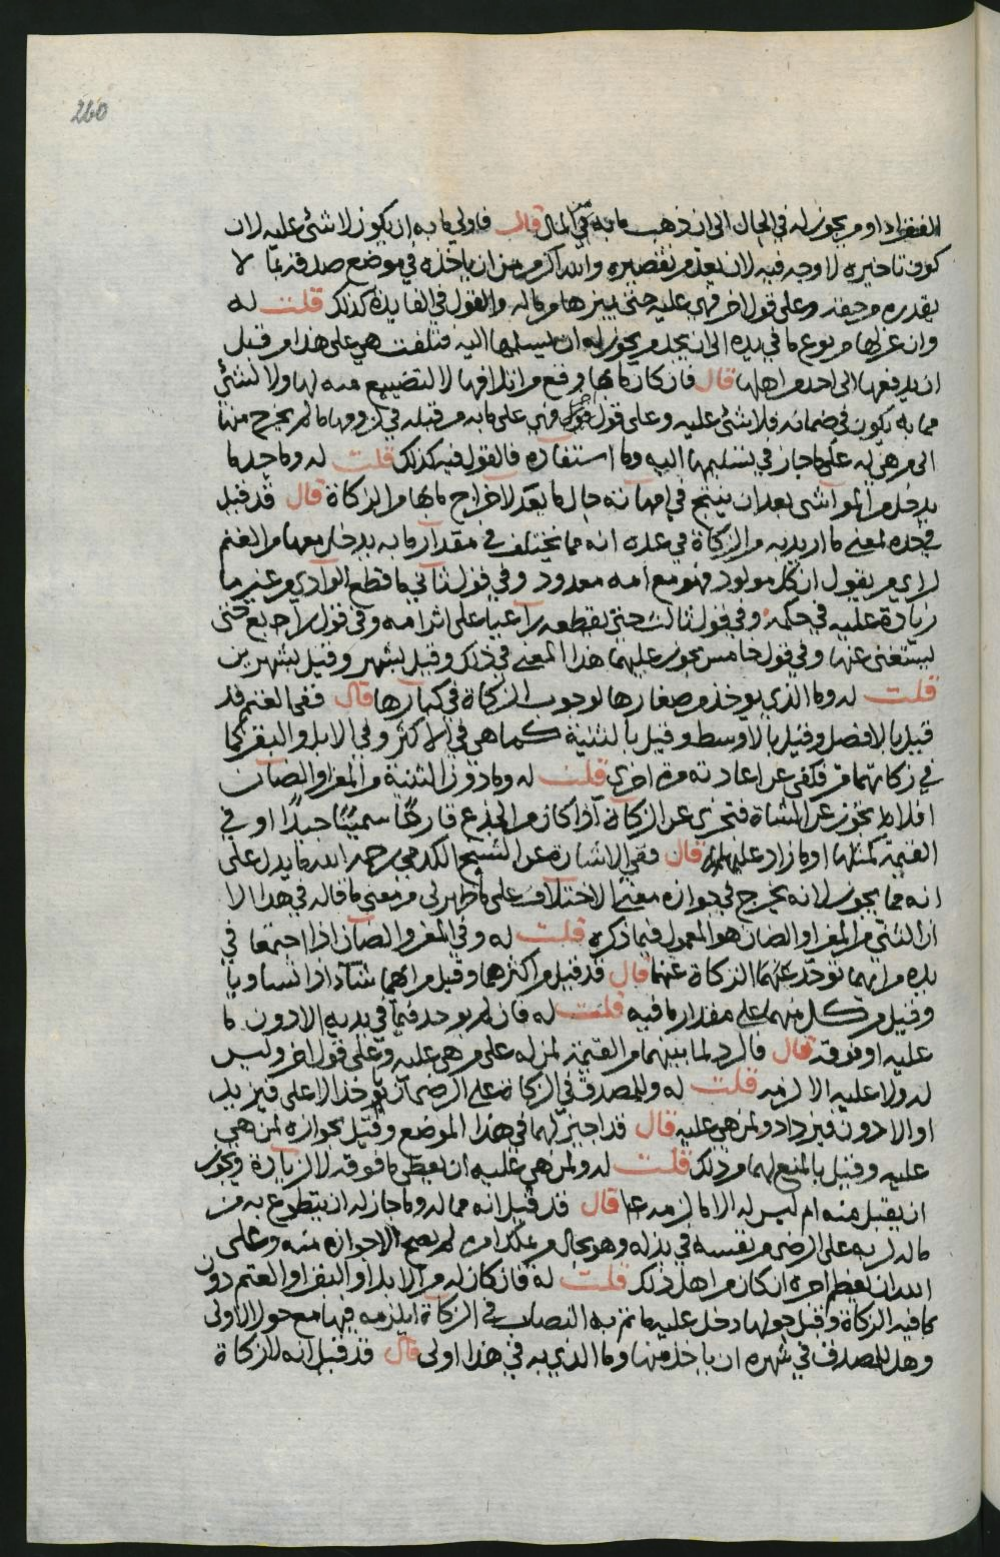 260
الفقراء او من يجوز له في الحال الى ان ذهب ما به في المال قال فاولى ما به ان يكون لا شئ عليه لان
كون تاخيره لا وجه فيه لان يعد من تقصيره والله اكرم من ان ياخذه في موضع صدقه بما لا
يقدره من حيفه وعلى قول اخر فهي عليه حتى يميزها من ماله والقول في الفايدة كذلك قلت له
وان عزلها من نوع ما في يده الى ان يجد من يجوز له ان يسلمها اليه فتلفت هي على هذا من قبل
ان يدفعها الى احد من اهلها قال فان كان ما بها وقع من اتلافها لا لتضييع منه لها ولا لشئ
مما به يكون في ضمانه فلا شئ عليه وعلى قول اخر فهي على ما به من قبله في لزومها ما لم يخرج منها
الى من هي له على ما جاز في تسليمها اليه وما استفاده فالقول فيه كذلك قلت له وما حد ما
يدخل من المواشي بعد ان ينتج في امهاته حال ما يعد لاخراج ما بها من الزكاة قال قد قيل
في حده لمعنى ما اريد به من الزكاة في عده انه مما يختلف في مقدار ما به يدخل معها من الغنم
لراي من يقول ان كل مولود فهو مع امه معدود وفي قول ثاني ما قطع الوادي من غير ما
زيادة عليه في حكمه وفي قول ثالث حتى يقطعه راعيا على اثر امه وفي قول رابع حتى
يستغني عنها وفي قول خامس يجوز عليهما هذا المعنى في ذلك وقيل بشهر وقيل بشهرين
قلت له وما الذي يوخذ من صغارها لوجوب الزكاة في كبارها قال ففي الغنم قد
قيل بالافضل وقيل بالاوسط وقيل بالثنية كما هي في الاكثر وفي الابل والبقر كما
في زكاتهما مر فكفى عن اعادته مرة اخرى قلت له وما دون الثنية من المعز او الضان
افلا يجوز عن الشاة فتجزي عن الزكاة اذا كان من الجذع فارها سمينا جيدا او في
القيمة كمثلها او ما زاد عليها قال ففي الاشارة عن الشيخ الكدمي رحمه الله ما يدل على
انه مما يجوز لانه يخرج في جوازه معنى الاختلاف على ما ظهر لي من معنى ما قاله في هذا الا
ان الثني من المعز او الضان هو المعمول فيما ذكره قلت له وفي المعز والضان اذا اجتمعا في
يده من ايهما توخذ عنهما الزكاة عنها قال قد قيل من اكثرهما وقيل من ايهما شاء اذا تساويا
وقيل من كل منهما على مقدار ما فيه قلت له فان لم يوجد فيما في يديه الا دون ما
عليه او فوقه قال فالرد لما بينهما من القيمة لمن له على من هي عليه وعلى قول اخر وليس
له ولا عليه الا لزمه قلت له وللمصدق في الزكاة على الرضى ان يوخذ الاعلى فيزيد
او الادون فيزداد ولمن هي عليه قال قد اجيز لهما في هذا الموضع وقيل بجوازه لمن هي
عليه وقيل بالمنع لهما من ذلك قلت له ولمن هي عليه ان يعطي ما فوقه لا لزيادة ويجوز
ان يقبل منه ام ليس له الا ما لزمه قال قد قيل انه مما له وما جاز له ان يتطوع به من
ماله لربه على الرضى من نفسه في بذله وهو بحال من يملك امره لم يصح الا جوازه منه وعلى
الله ان يعظم اجره ان كان من اهل ذلك قلت له فان كان له من الابل او البقر او الغنم دون
ما فيه الزكاة وقبل حولها دخل عليه ما تم به النصاب في الزكاة ايلزمه فيها مع حول الاولى
وهل للمصدق في شهره ان ياخذ منها وما الذي به في هذا اولى قال قد قيل انه لا زكاة